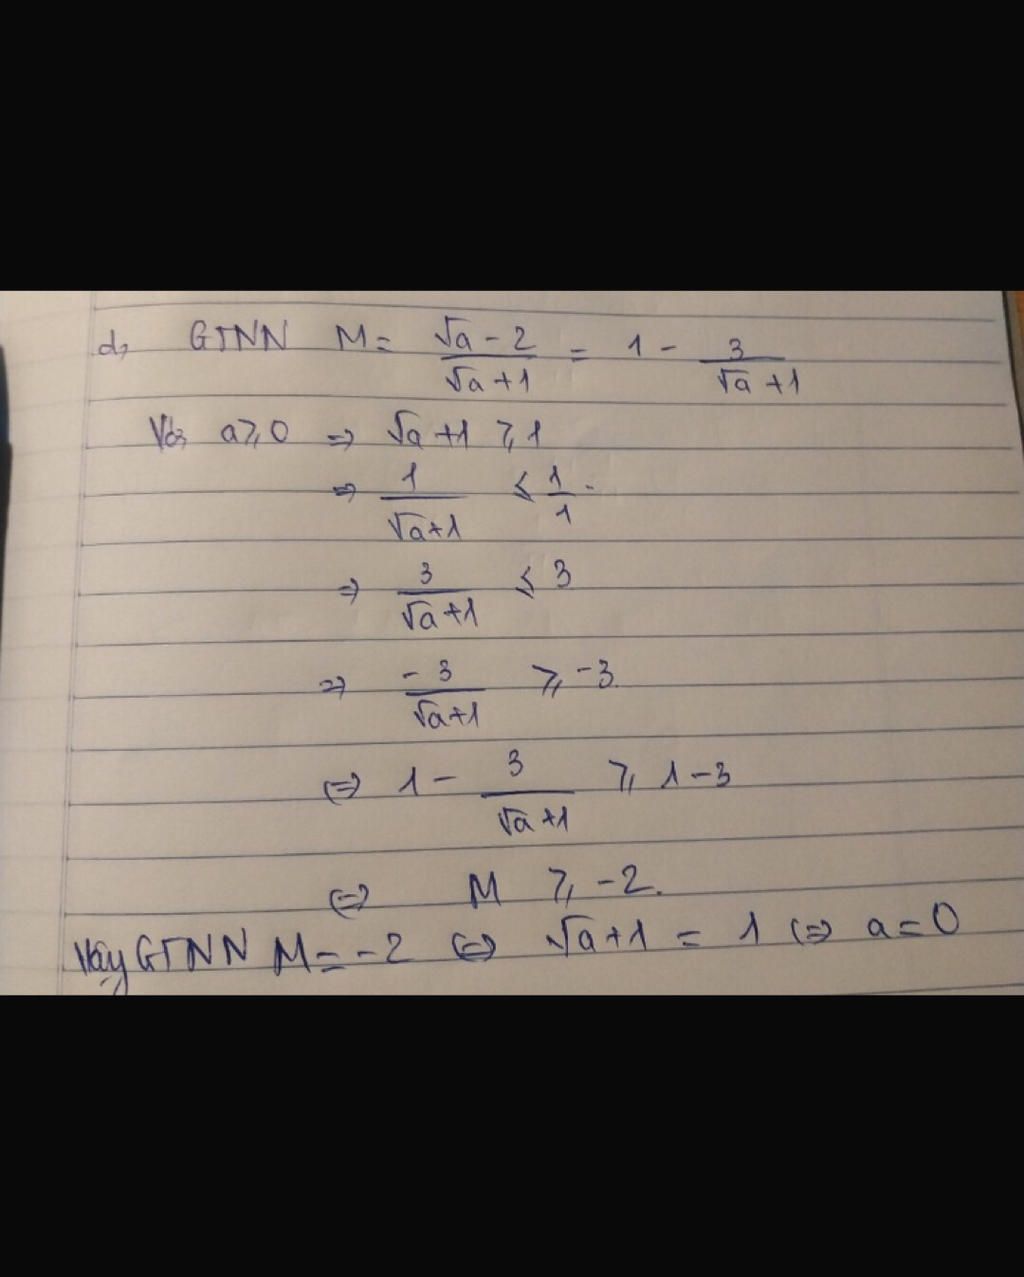 d, GTNN M = (√a - 2)/(√a + 1) = 1 - 3/(√a + 1)
Với a ⩾ 0 ⇒ √a + 1 ⩾ 1
⇒ 1/(√a + 1) ⩽ 1/1
⇒ 3/(√a + 1) ⩽ 3
⇒ -3/(√a + 1) ⩾ -3
⇔ 1 - 3/(√a + 1) ⩾ 1 - 3
⇔ M ⩾ -2.
Vậy GTNN M = -2 ⇔ √a + 1 = 1 ⇔ a = 0